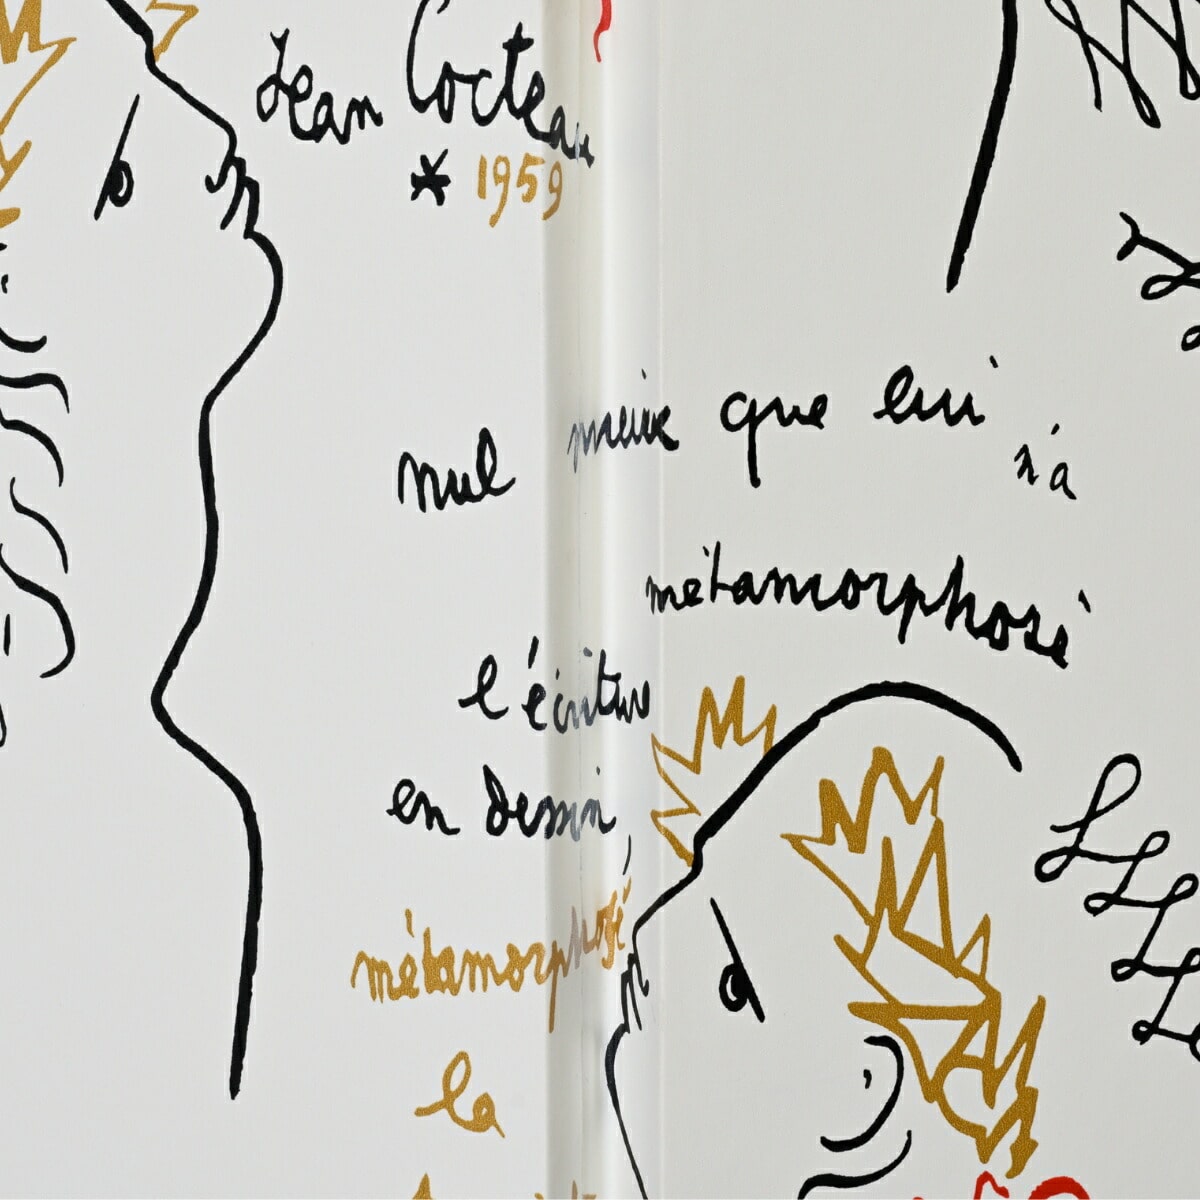 Jean Cocteau
* 1959
nul mieux que lui n'a
métamorphosé
l'écriture
en dessin
métamorphosé
la